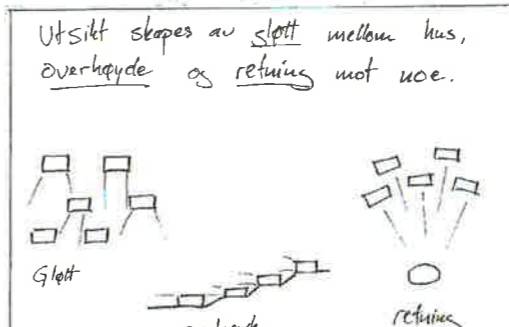 Utsikt skapes av sløtt mellom hus,
overhøyde og retning mot noe.
Gløtt
retning